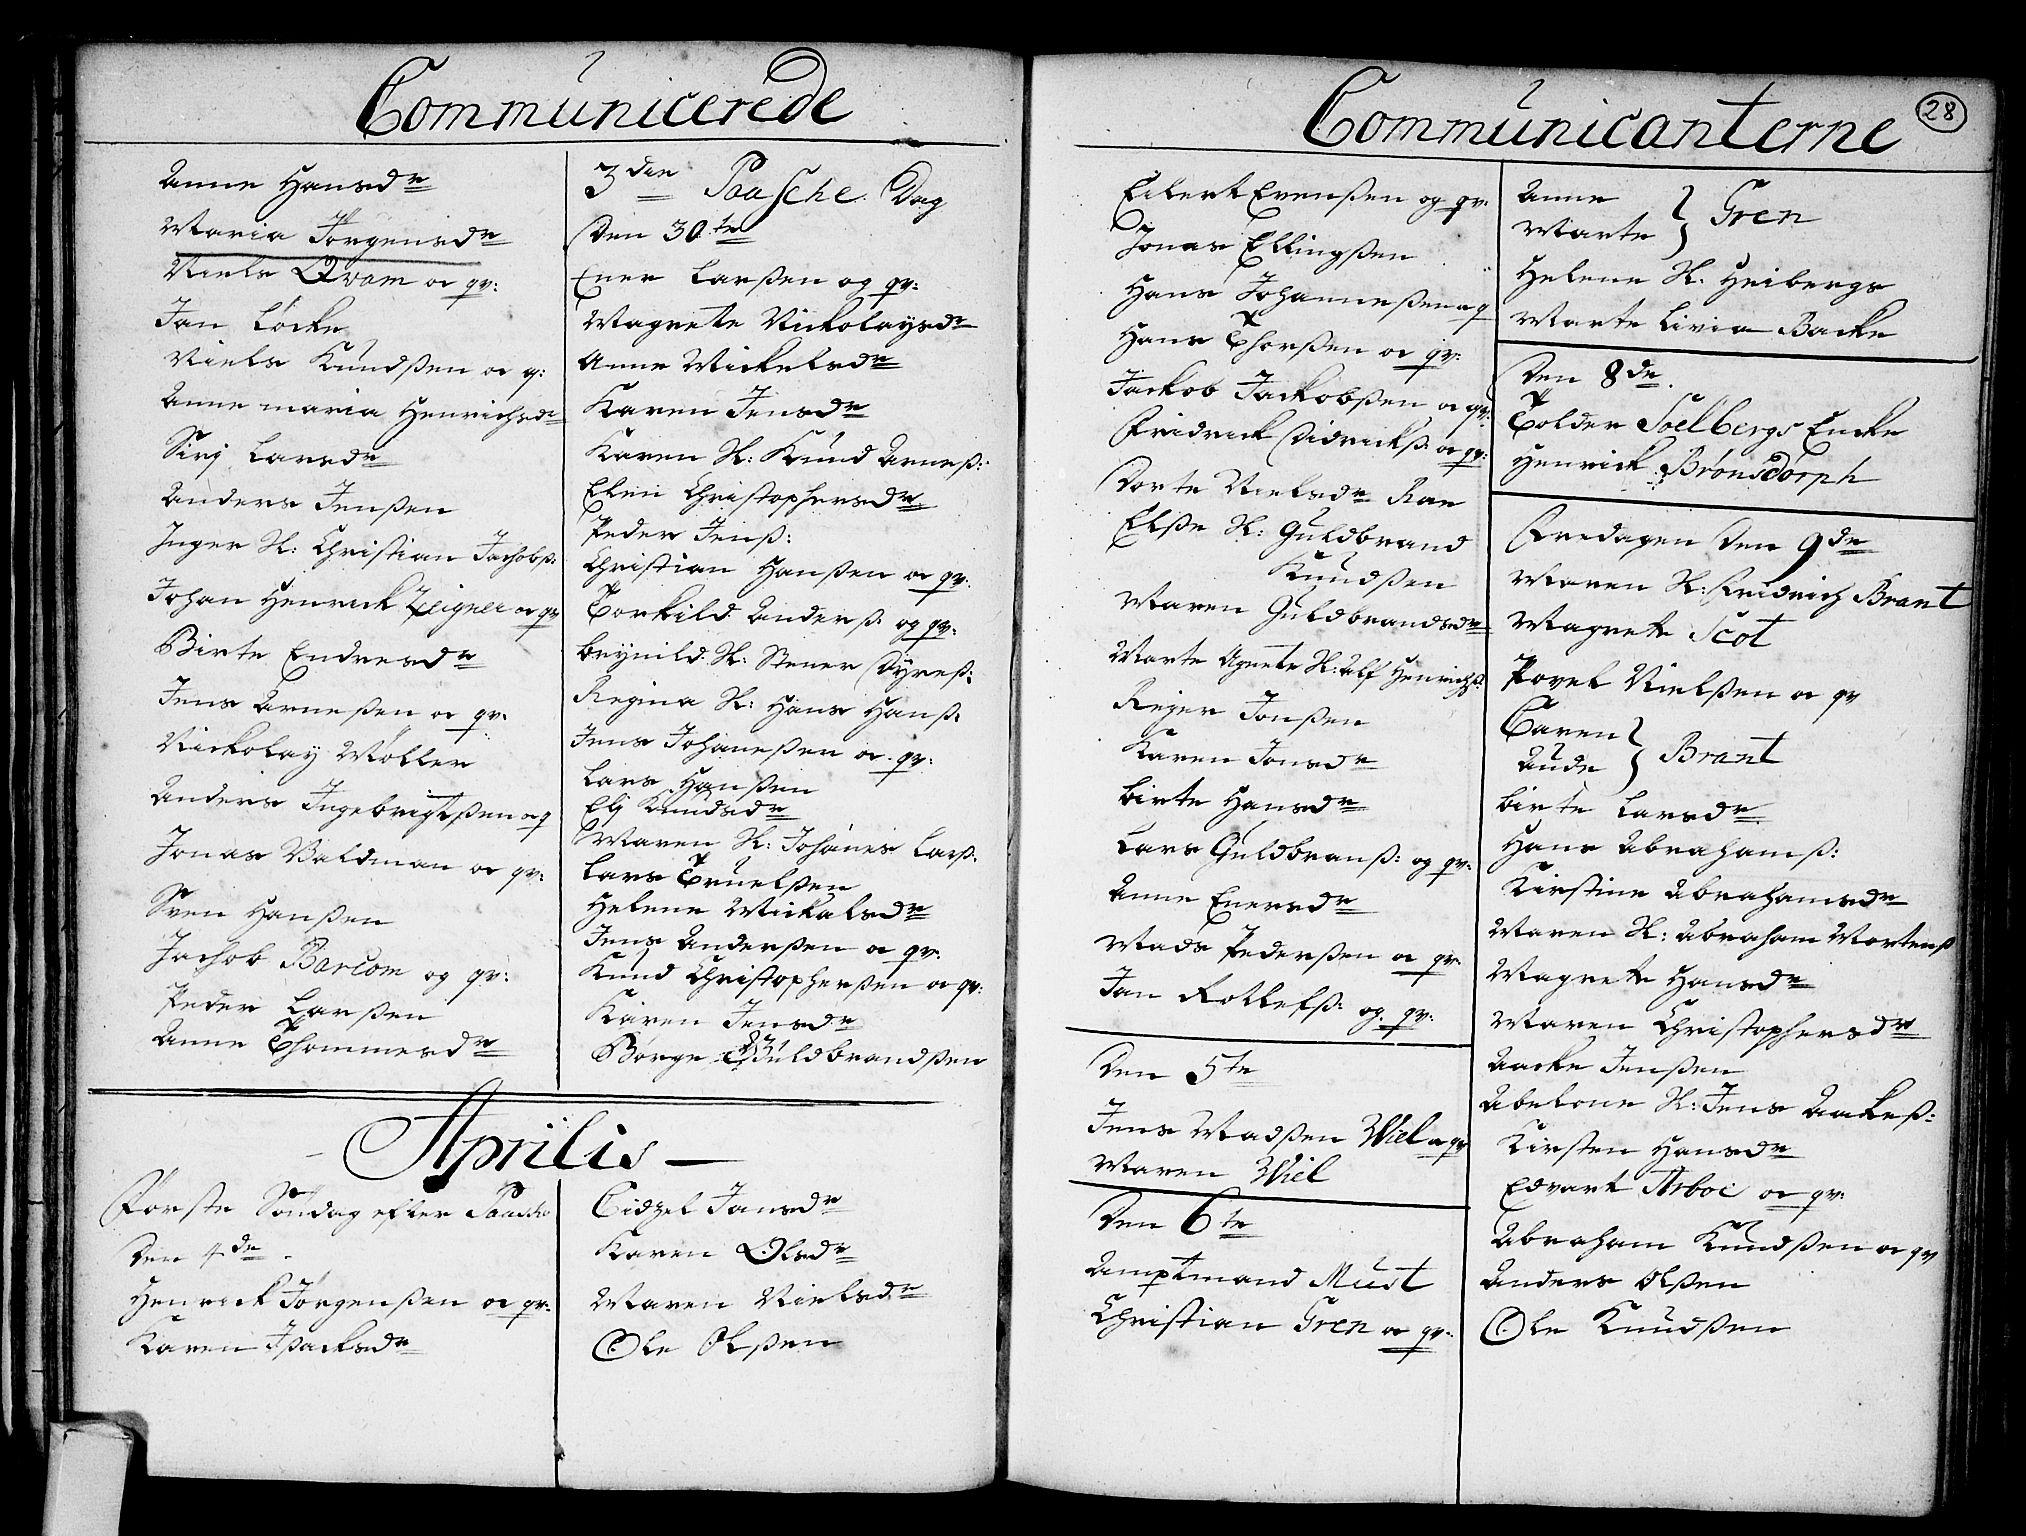 Communicerede
Anne Hansdr
Maria Jørgensdr
Niels Qvam og qv:
Jan Løcke
Niels Knudßen og q:
Anne maria Henrichsdr
Sirj Larsdr
Anders Jenßen
Inger H: Christian Jachobß:
Johan Henrick Zeigner og qv
Birte Endresdr
Jens Arneßen og qv:
Nickolay Møller
Anders Ingebrigtßen og q
Jonas Valdman og qv:
Sven Hanßen
Jachob Barcom og qv:
Peder Larßen
Anne Thommesdr
3die Paasche Dag
Den 30te
Ener Larßen og qv:
Magrete Nickolaysdr
Anne Mickelsdr
Karen Jensdr
Karen H: Knud Arneß:
Elen Christophersdr
Peder Jenß:
Christian Hanßen og qv:
Torkild Anderß: og qv:
Brynild H: Stener Dyreß:
Regina H: Hans Hanß:
Jens Johaneßen og qv:
Lars Hanßen
Elj Knudsdr
Maren H: Johanes Larß:
Lars Truelßen
Helene Mickalsdr
Jens Anderßen og qv:
Knud Christopherßen og qv:
Karen Jensdr
Børge Guldbrandßen
Aprilis
Første Søndag efter Paasche
Den 4de
Henrick Jørgenßen og qv:
Karen Ißacksdr
Cidzel Jansdr
Karen Olsdr
Maren Nielsdr
Ole Olßen
Communicanterne
28
Eilert Evenßen og qv:
Jonas Ellingßen
Hans Johanneßen og q
Hans Thorßen og qv:
Jackob Jackobßen og qv:
Fridrick Didrickß: og qv:
Dorte Nielsdr Ran
Elße H: Guldbrand
Knudßen
Maren Guldbrandsdr
Marte Agnete H: Alf Henrichß:
Rejer Jonßen
Karen Jonsdr
Birte Hansdr
Lars Guldbranß: og qv:
Anne Enersdr
Mads Pederßen og qv:
Jan Rollefß: og qv:
Den 5te
Jens Madßen Wiel og qv
Maren Wiel
Den 6te
Amptmand Must
Christian Gren og qv:
Anne
Marte } Gren
Helene H: Heibergs
Marte Livia Backe
Den 8de
Tolder Soelbergs Encke
Henrick Brønsdorph
Fredagen Den 9de
Maren H: Fridrich Brant
Magrete Scot
Povel Nielßen og qv
Caren
Aude } Brant
Birte Larsdr
Hans Abrahamß:
Kirstine Abrahamsdr
Maren H: Abraham Mortenß
Magrete Hansdr
Maren Christophersdr
Aacke Jenßen
Abelone H: Jens Aakeß:
Kirsten Hansdr
Edvart Arboe og qv:
Abraham Knudßen og qv
Anders Olßen
Ole Knudßen